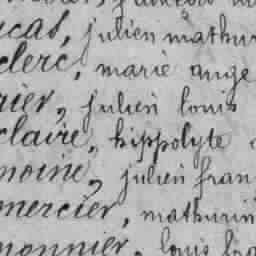 ucas, julien mathur
clerc, marie ange
rier, julien louis
claire, hippolyte
moine, julien fran
mercier, mathurin
monnier, louis